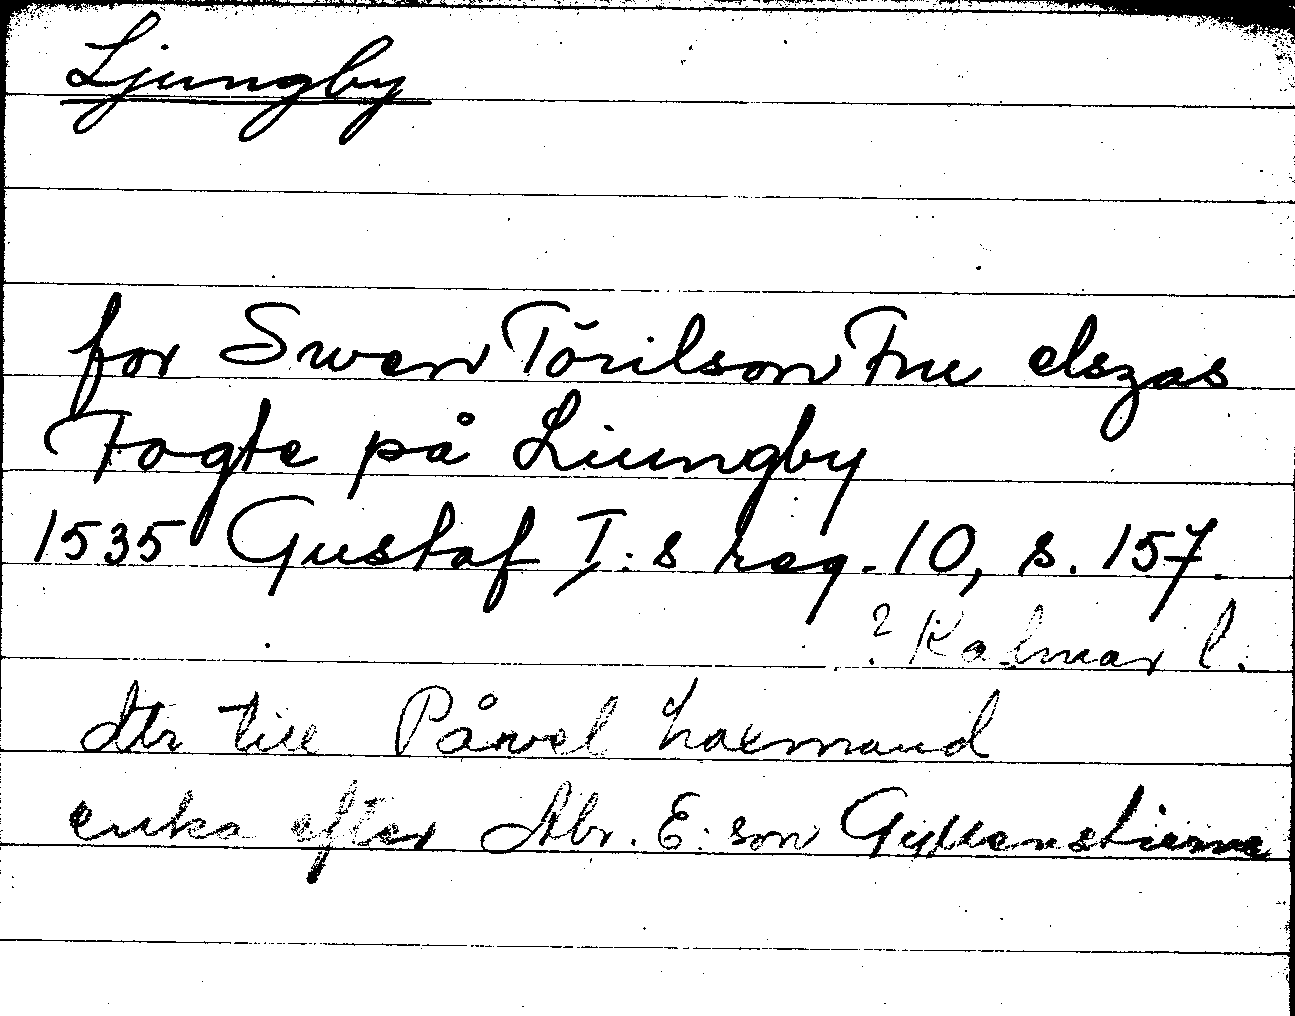 Ljungby
for Swen Törilson Frue elszas
Fogte på Liungby
1535 Gustaf I:s reg. 10, s. 157.
? Kalmar l.
dtr till Påwel Laxmand
enka efter Abr. E:son Gyllenstierne